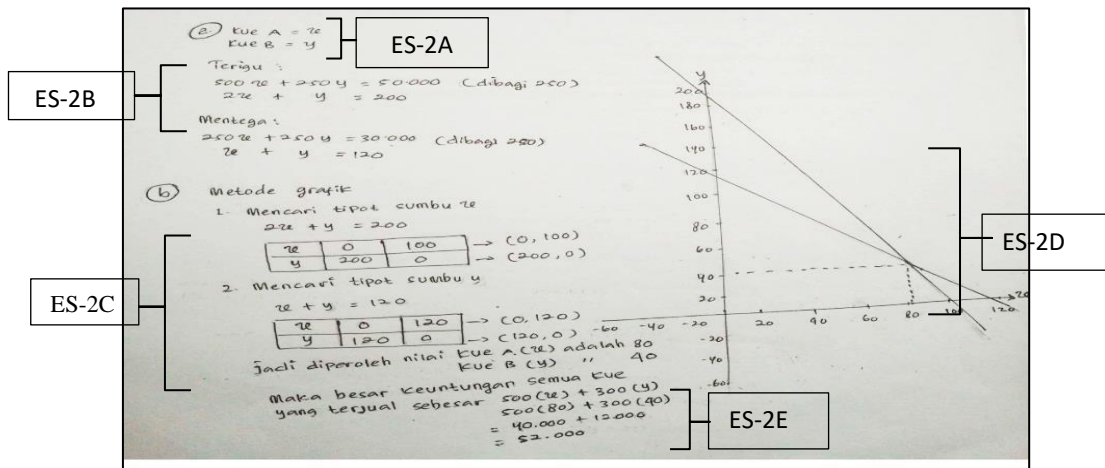 (a) Kue A = x
Kue B = y
ES-2A
ES-2B
Terigu :
500 x + 250 y = 50.000 (dibagi 250)
2x + y = 200
Mentega :
250 x + 250 y = 30.000 (dibagi 250)
x + y = 120
(b) Metode grafik
1. Mencari tipot sumbu x
2x + y = 200
x 0 100 → (0, 100)
y 200 0 → (200, 0)
ES-2C
2. Mencari tipot sumbu y
x + y = 120
x 0 120 → (0, 120)
y 120 0 → (120, 0)
jadi diperoleh nilai Kue A (x) adalah 80
Kue B (y) " 40
Maka besar keuntungan semua kue
yang terjual sebesar 500 (x) + 300 (y)
500 (80) + 300 (40)
= 40.000 + 12.000
= 52.000
ES-2E
y
200
180
160
140
120
100
80
60
40
20
-60 -40 -20 20 40 60 80 100 120 x
-20
-40
-60
ES-2D